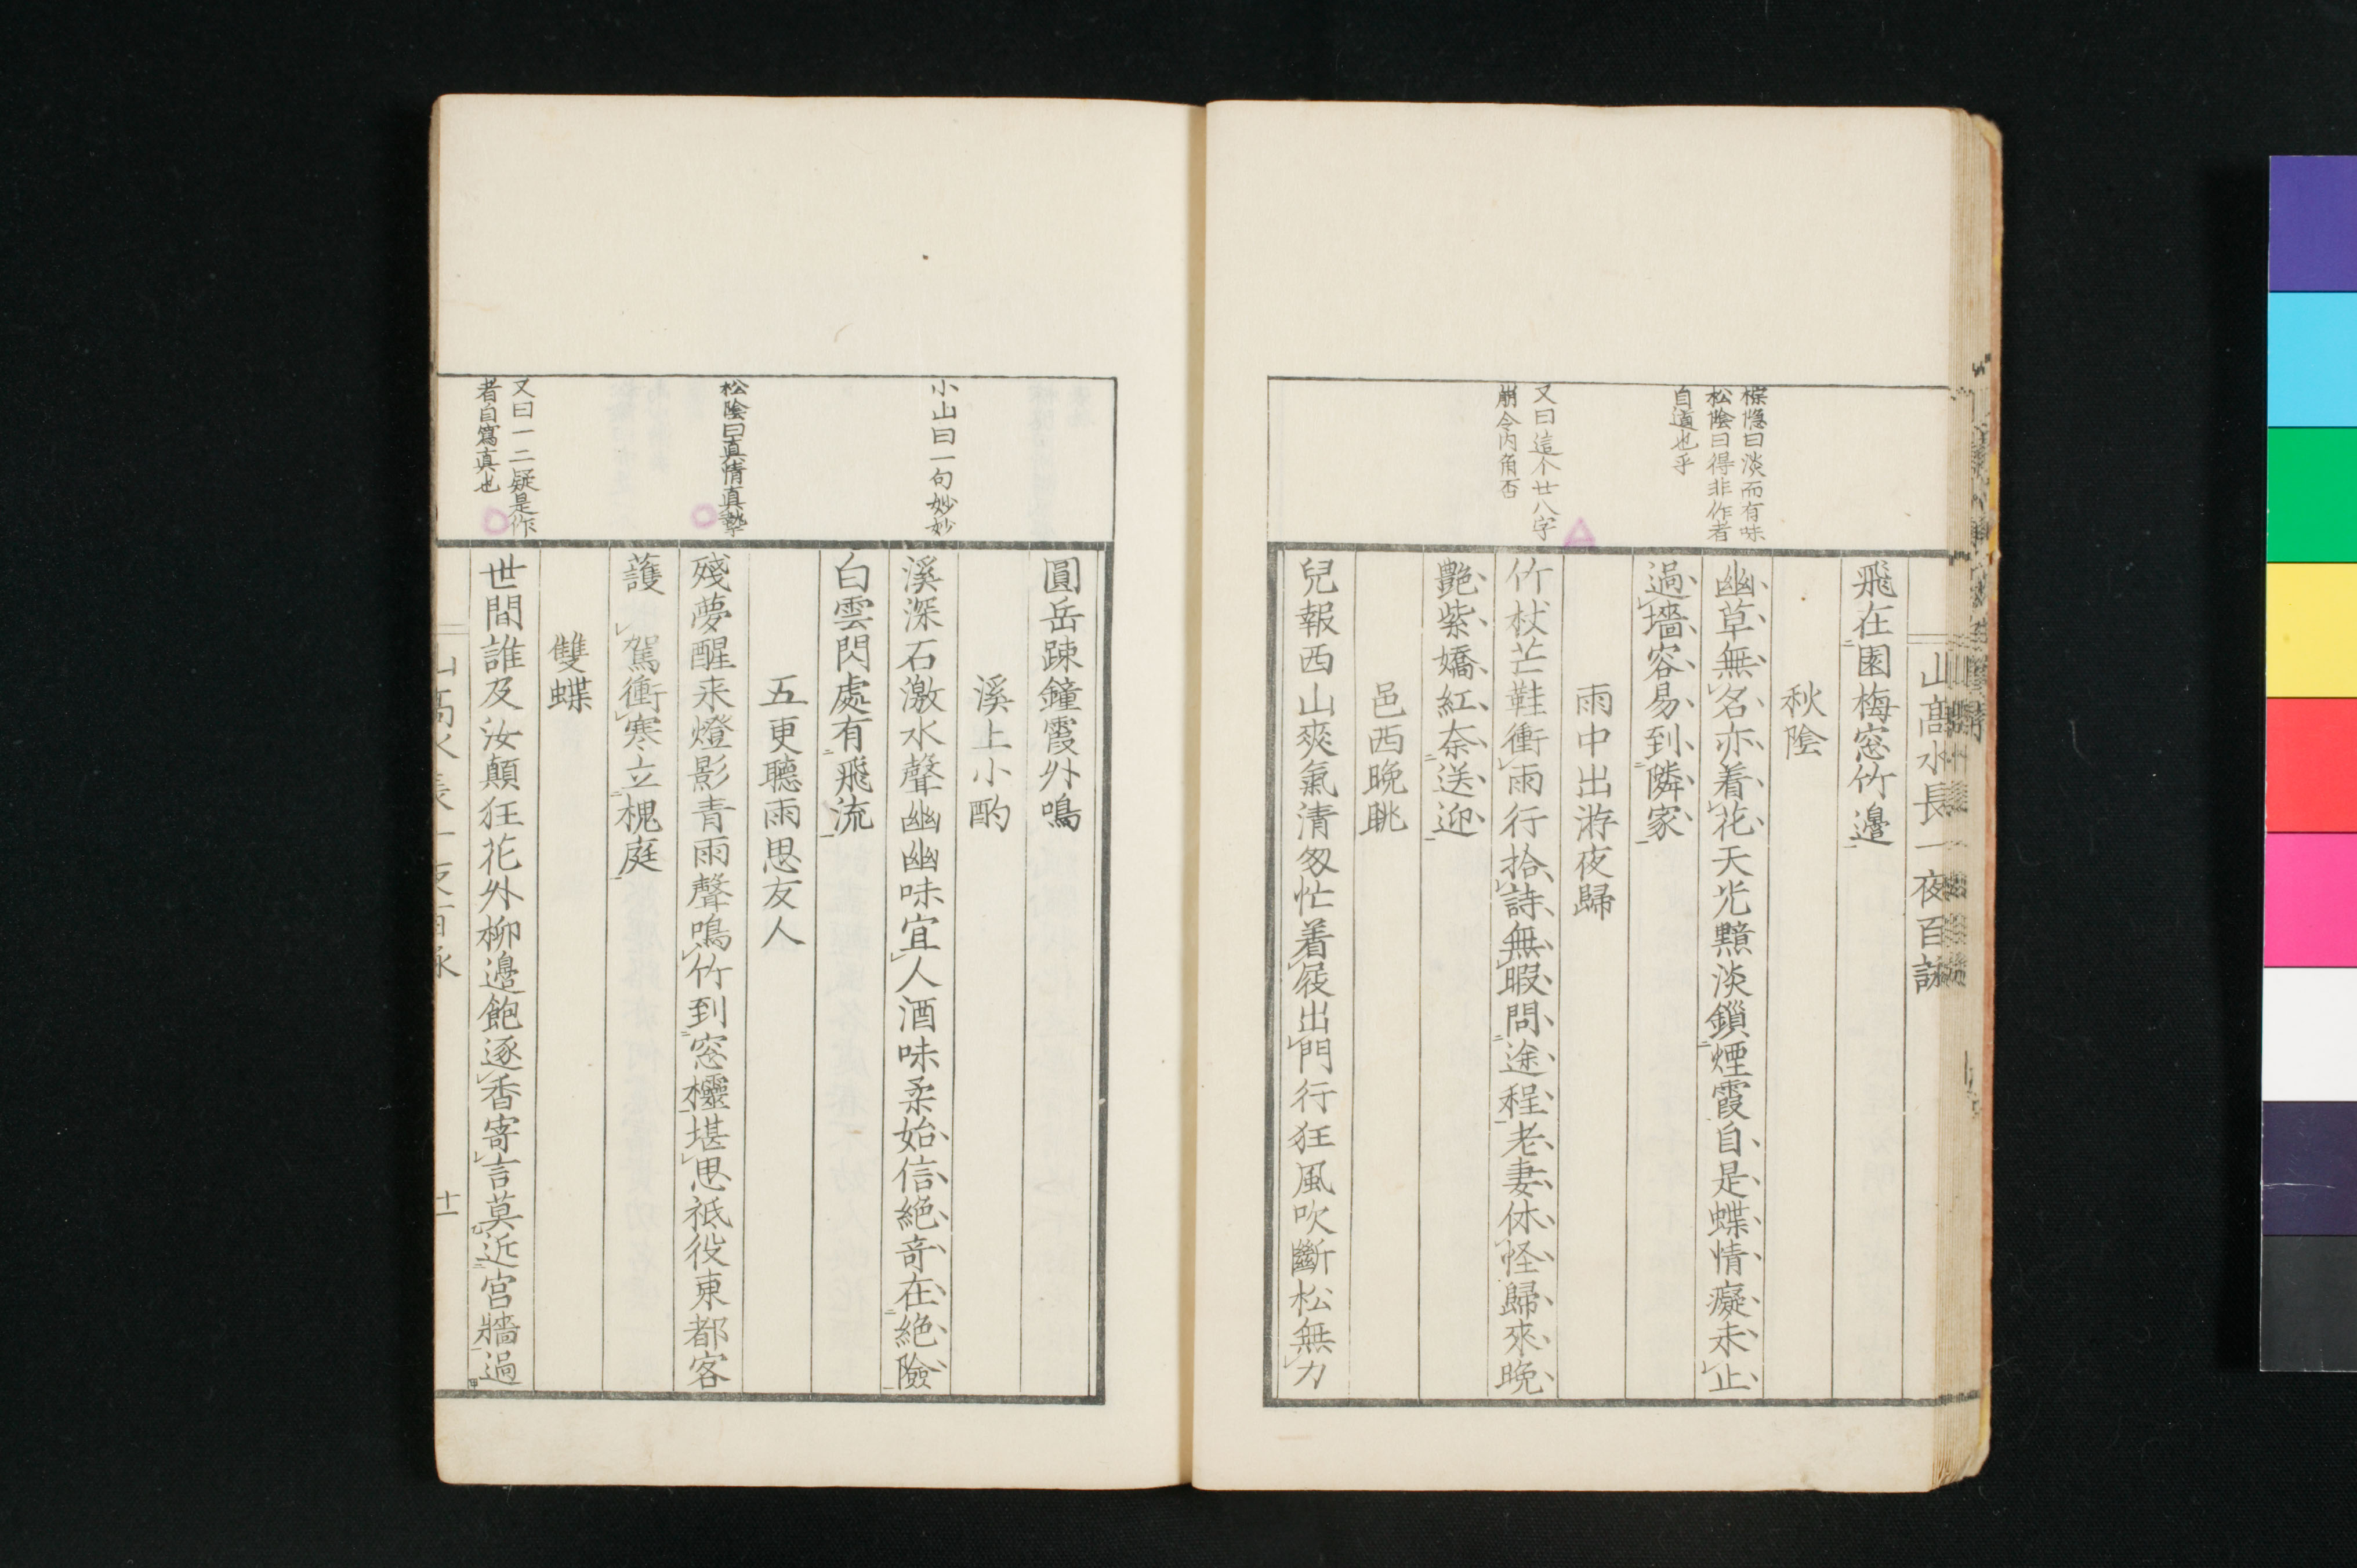 山高水長一夜百詠
飛在園梅窓竹邊
秋陰
幽草無名亦着花天光黯淡鎻煙霞自是蝶情癡未止
過墻容易到隣家
雨中出游夜歸
竹杖芒鞋衝雨行拾詩無暇問途程老妻休怪歸來晩
艶紫嬌紅奈送迎
邑西晩眺
兒報西山爽氣清匆忙着屐出門行狂風吹斷松無力
隱曰淡而有味
松陰曰得非作者
自道也乎
又曰這个廿八字
崩令内角否
圓岳踈鐘霞外鳴
溪上小酌
溪深石激水聲幽幽味宜人酒味柔始信絶奇在絶險
白雲閃處有飛流
五更聽雨思友人
殘夢醒来燈影青雨聲鳴竹到窓櫺堪思祗役東都客
護駕衝寒立槐庭
雙蝶
世間誰及汝顛狂花外柳邊飽逐香寄言莫近宮牆過
小山曰一句妙妙
松陰曰真情真摯
又曰一二疑是作
者自寫真也
十一